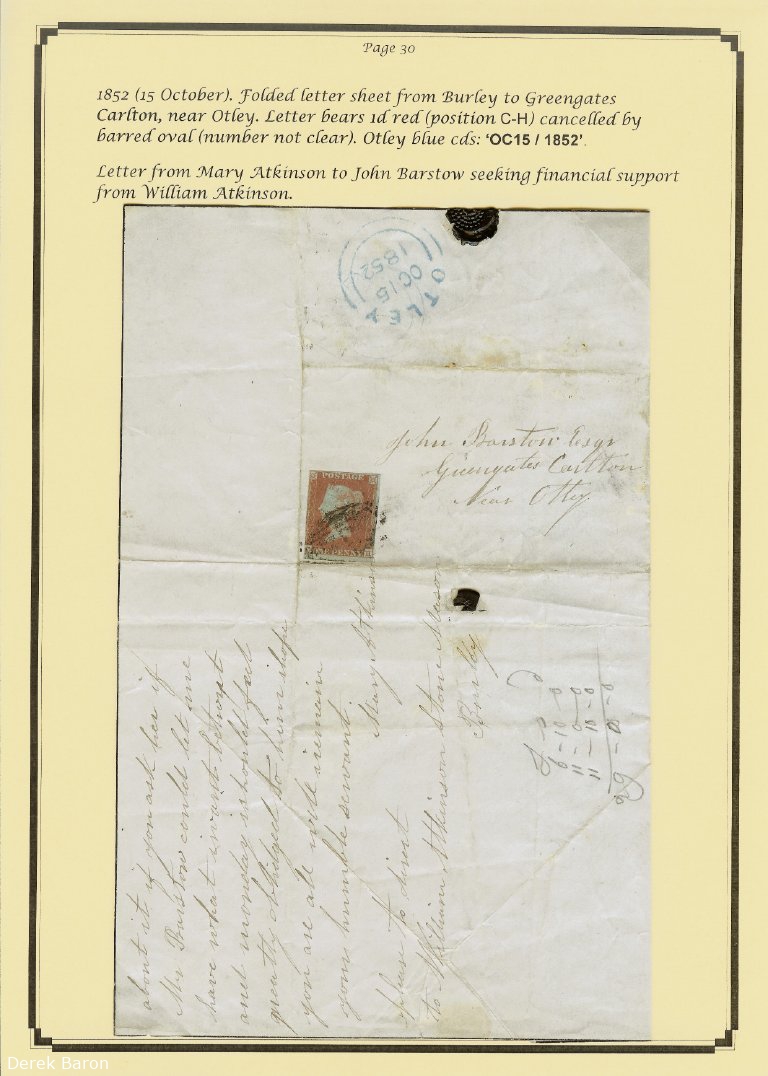 Page 30
1852 (15 October). Folded letter sheet from Burley to Greengates
Carlton, near Otley. Letter bears 1d red (position C-H) cancelled by
barred oval (number not clear). Otley blue cds: ‘OC15 / 1852’.
Letter from Mary Atkinson to John Barstow seeking financial support
from William Atkinson.
OTLEY
OC 15
1852
John Barstow Esqr
Greengates Carlton
Near Otley
POSTAGE
ONE PENNY
about it if you ask her if
Mr Barstow could let me
have what i want betwixt
and monday i should feel
greatly obbidged to him i hope
you are all well i remain
your humble servant
Mary Atkinson
please to direct
to William Atkinson Stone Mason
Burley
£ s d
6 - 10 - 0
11 - 0 - 0
11 - 10 - 0
29 - 0 - 0
Derek Baron